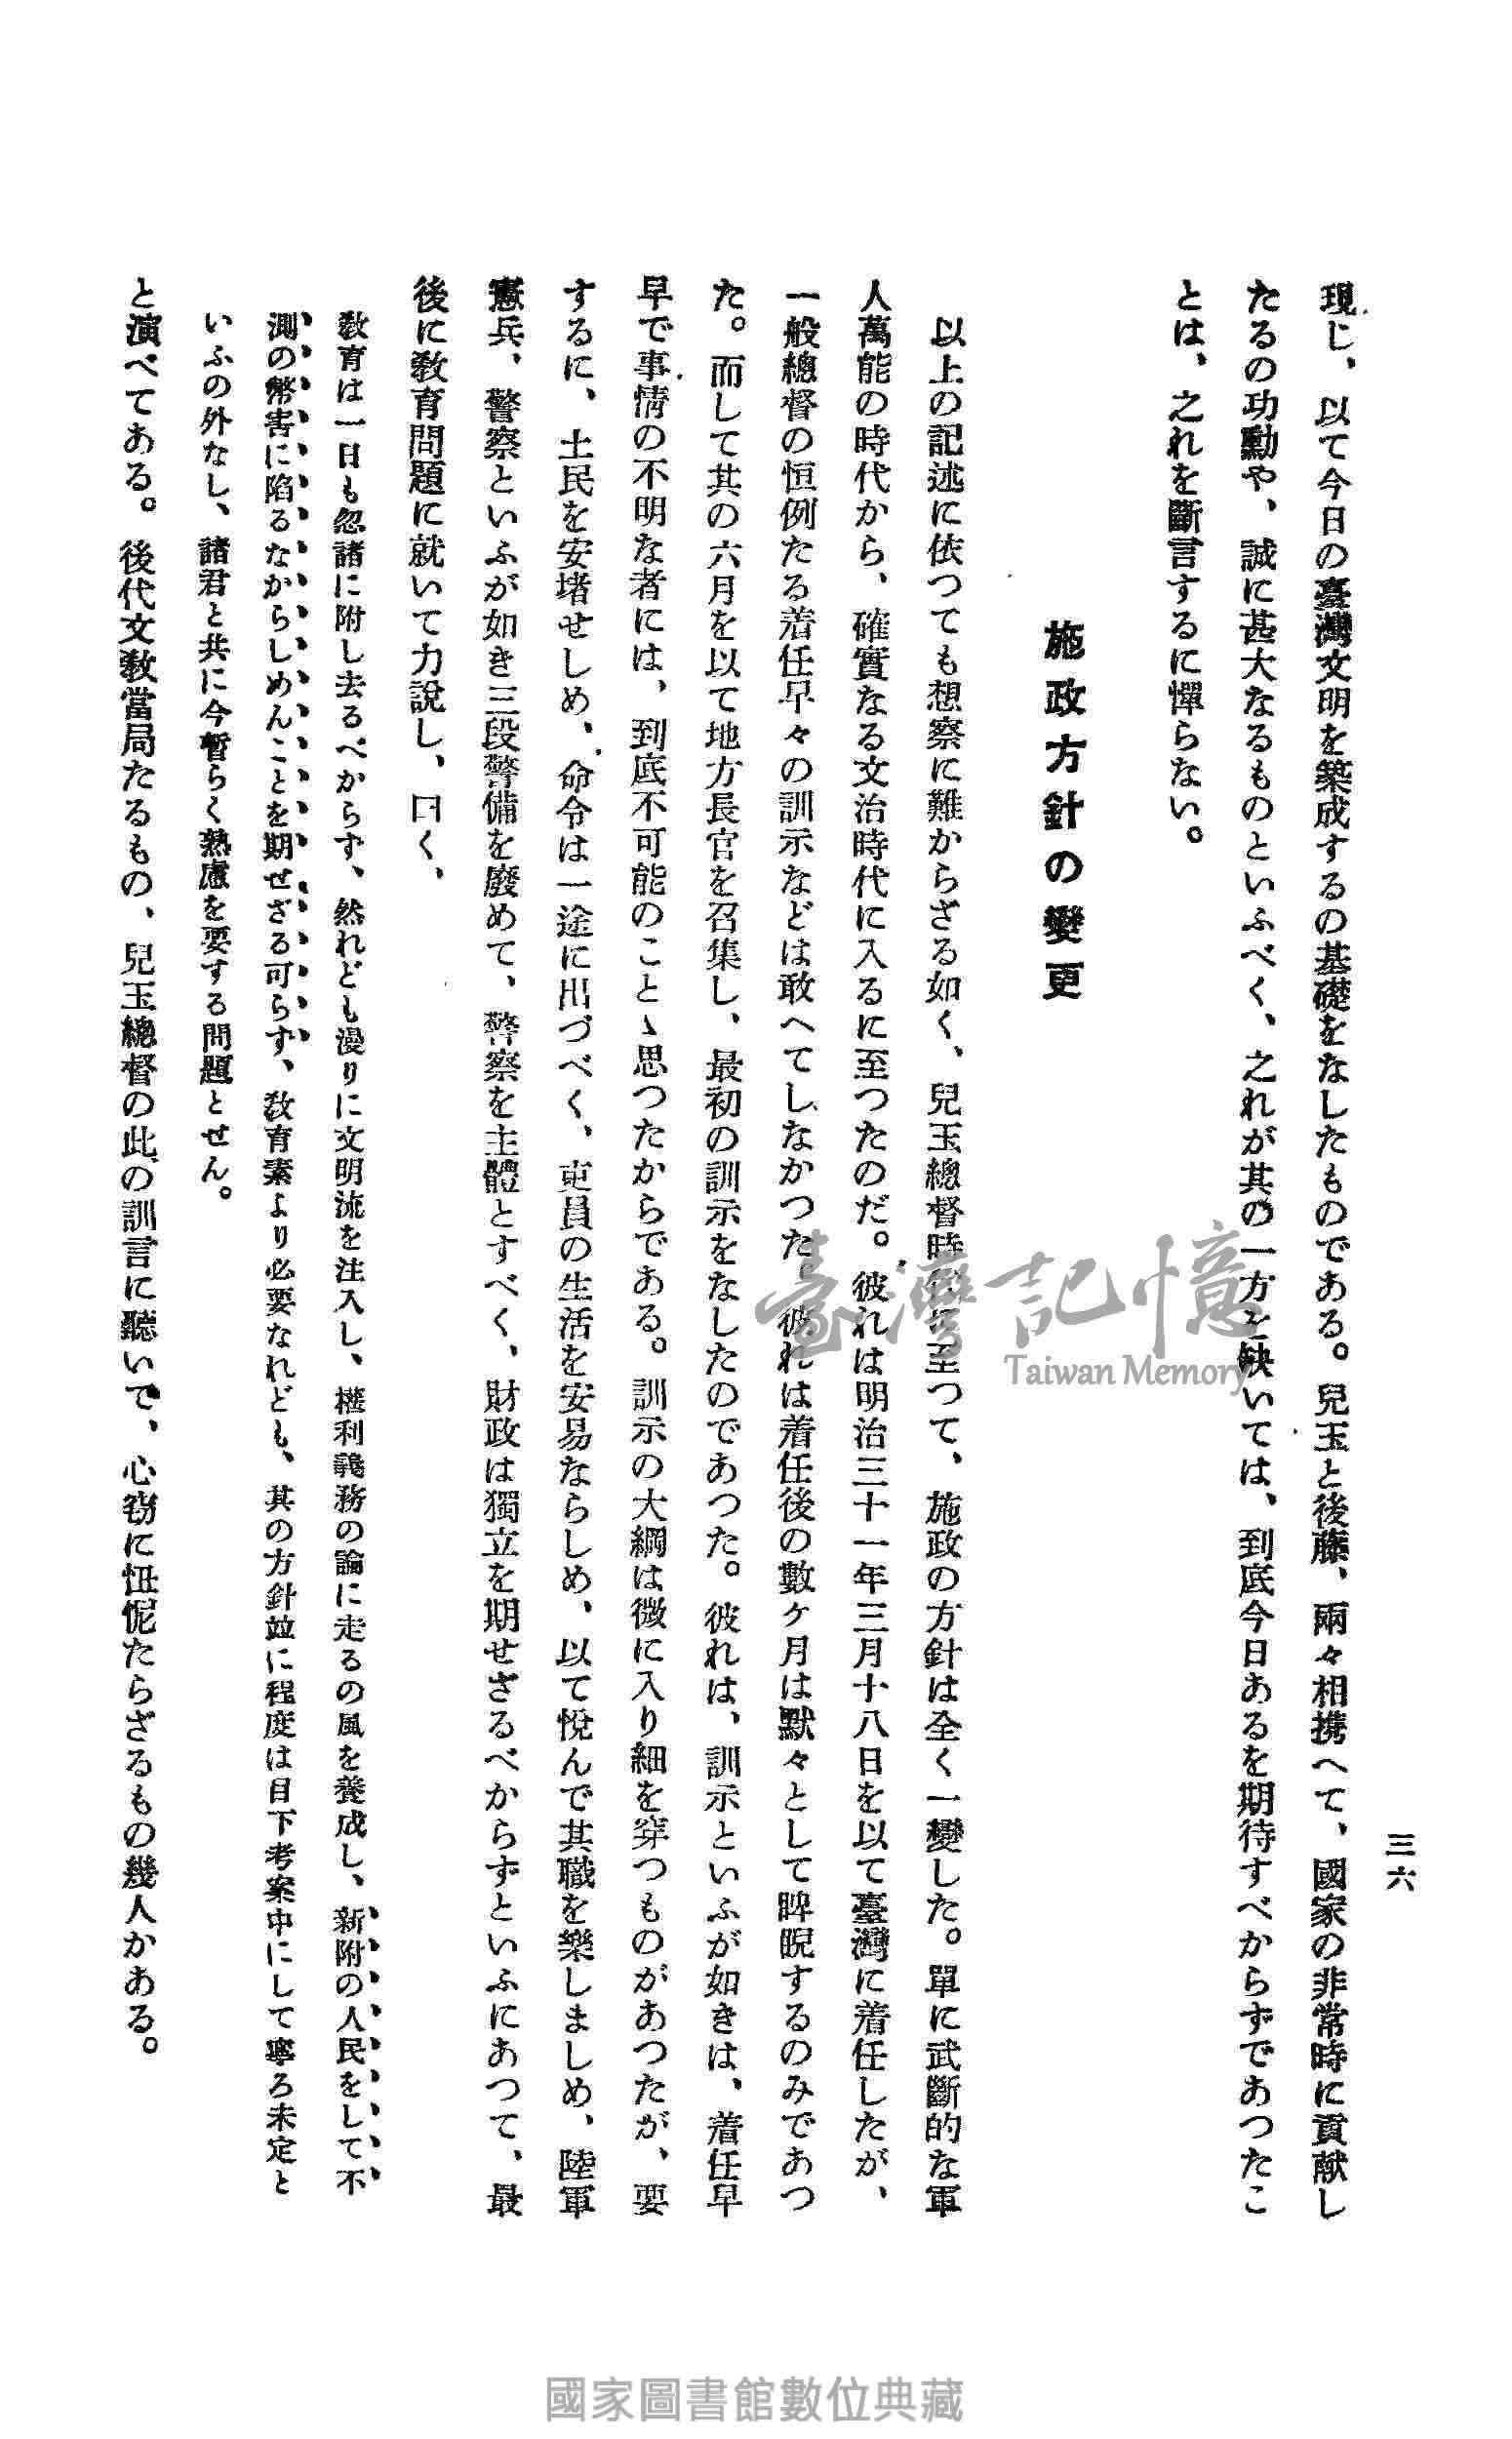 三六
現じ、以て今日の臺灣文明を築成するの基礎をなしたものである。兒玉と後藤、兩々相携へて、國家の非常時に貢献し
たるの功勳や、誠に甚大なるものといふべく、之れが其の一方を缺いては、到底今日あるを期待すべからずであつたこ
とは、之れを斷言するに憚らない。
施政方針の變更
以上の記述に依つても想察に難からざる如く、兒玉總督時代に至つて、施政の方針は全く一變した。單に武斷的な軍
人萬能の時代から、確實なる文治時代に入るに至つたのだ。彼れは明治三十一年三月十八日を以て臺灣に着任したが、
一般總督の恒例たる着任早々の訓示などは敢へてしなかつた。彼れは着任後の數ヶ月は默々として睥睨するのみであつ
た。而して其の六月を以て地方長官を召集し、最初の訓示をなしたのであつた。彼れは、訓示といふが如きは、着任早
早で事情の不明な者には、到底不可能のことゝ思つたからである。訓示の大綱は微に入り細を穿つものがあつたが、要
するに、土民を安堵せしめ、命令は一途に出づべく、吏員の生活を安易ならしめ、以て悅んで其職を樂しましめ、陸軍
憲兵、警察といふが如き三段警備を廢めて、警察を主體とすべく、財政は獨立を期せざるべからずといふにあつて、最
後に敎育問題に就いて力說し、曰く、
敎育は一日も忽諸に附し去るべからず、然れども漫りに文明流を注入し、權利義務の論に走るの風を養成し、新附の人民をして不
測の幣害に陷るなからしめんことを期せざる可らず、敎育素より必要なれども、其の方針並に程度は目下考案中にして寧ろ未定と
いふの外なし、諸君と共に今暫らく熟慮を要する問題とせん。
と演べてある。後代文敎當局たるもの、兒玉總督の此の訓言に聽いて、心窃に忸怩たらざるもの幾人かある。
臺灣記憶
Taiwan Memory
國家圖書館數位典藏